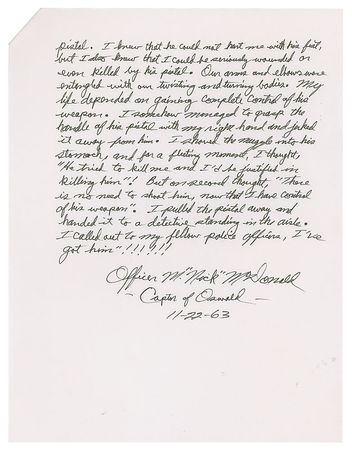 pistol. I knew that he could not hurt me with his fist,
but I also knew that I could be seriously wounded or
even killed by his pistol. Our arms and elbows were
entangled with our twisting and turning bodies. My
life depended on gaining complete control of his
weapon. I somehow managed to grasp the
handle of his pistol with my right hand and jerked
it away from him. I shoved the muzzle into his
stomach, and for a fleeting moment, I thought,
"He tried to kill me and I'd be justified in
killing him"! But on second thought, "There
is no need to shoot him, now that I have control
of his weapon". I pulled the pistol away and
handed it to a detective standing in the aisle.
I called out to my fellow police officers, I've
got him"!!!!!!
Officer M. "Nick" McDonald
- Captor of Oswald -
11-22-63